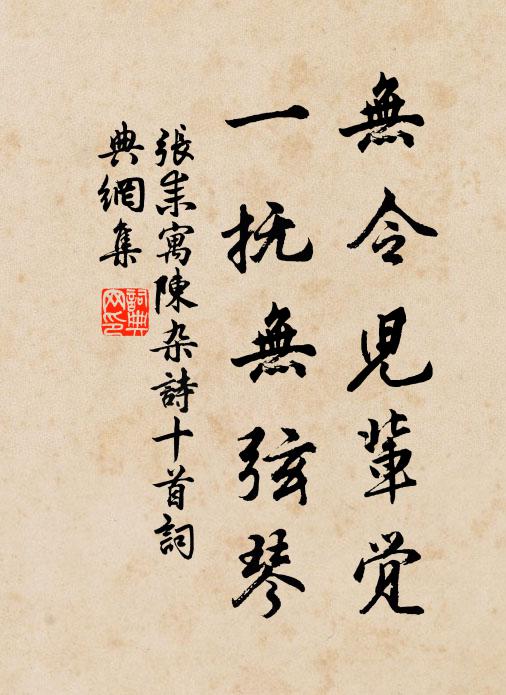 無令児輩覚
一抚無弦琴
張耒寓陳杂詩十首詞
典網集
詞典网印